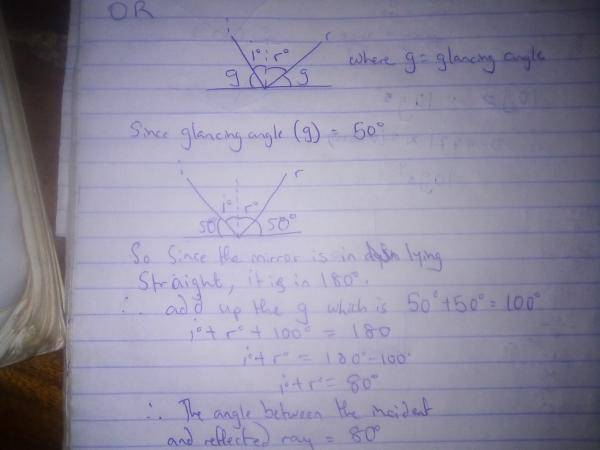 OR
i r
i° r°
g g where g = glancing angle
Since glancing angle (g) = 50°
i r
i° r°
50 50°
So Since the mirror is in lying
Straight, it is in 180°.
∴ add up the g which is 50° + 50° = 100°
i° + r° + 100° = 180
i° + r° = 180° - 100°
i° + r° = 80°
∴ The angle between the incident
and reflected ray = 80°